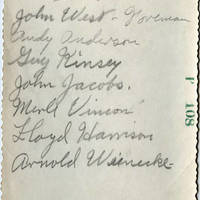 John West - Foreman
Andy Anderson
Guy Kinsey
John Jacobs.
Merle Vinson
Lloyd Harrison
Arnold Wienecke-
P 108